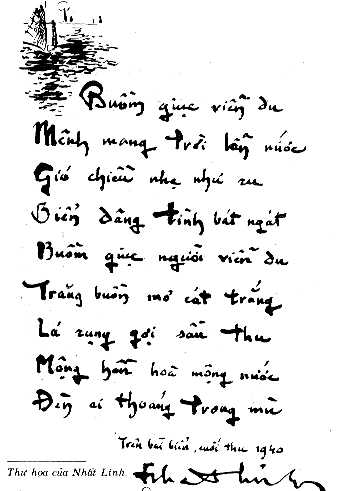 Buồm giục viễn du
Mênh mang trời lẫn nước
Gió chiều nhẹ như ru
Biển dâng tình bát ngát
Buồm giục người viễn du
Trăng buồn mơ cát trắng
Lá rụng gợi sầu thu
Mộng hồn hoà mộng nước
Đèn ai thoáng trong mù
Trên bãi biển, cuối thu 1940
Thư họa của Nhất Linh.
Nhất Linh